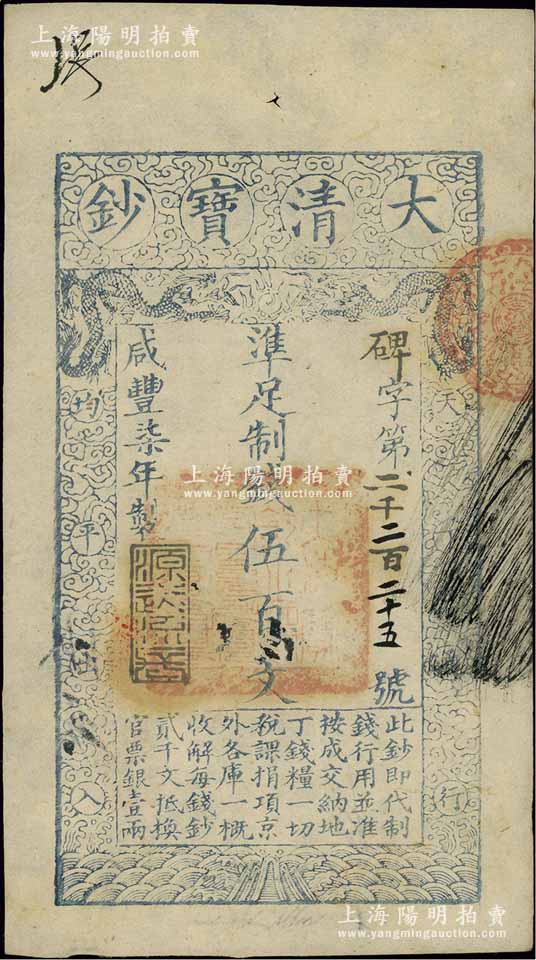 上海陽明拍賣
www.yangmingauction.com
大清寶鈔
碑字第二千二百二十五號
準足制錢伍百文
咸豐柒年製
天
行
均平
入
此鈔即代制
錢行用並准
按成交納地
丁錢糧一切
稅課捐項京
外各庫一概
收解每錢鈔
貳千文抵換
官票銀壹兩
上海陽明拍賣
www.yangmingauction.com
上海陽明拍賣
www.yangmingauction.com